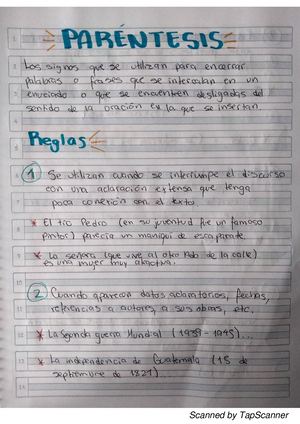 PARÉNTESIS
Los signos que se utilizan para encerrar
palabras o frases que se intercalan en un
enunciado o que se encuentren desligadas del
sentido de la oración en la que se insertan.
Reglas
1 Se utilizan cuando se interrumpe el discurso
con una aclaración extensa que tenga
poca conexión con el texto.
* El tío Pedro (en su juventud fue un famoso
pintor) parecía un maniquí de escaparate.
* La señora (que vive al otro lado de la calle)
es una mujer muy atractiva.
2 Cuando aparecen datos aclaratorios, fechas,
referencias a autores, a sus obras, etc.
* La Segunda guerra Mundial (1939-1945)...
* La independencia de Guatemala (15 de
septiembre de 1821)...
Scanned by TapScanner